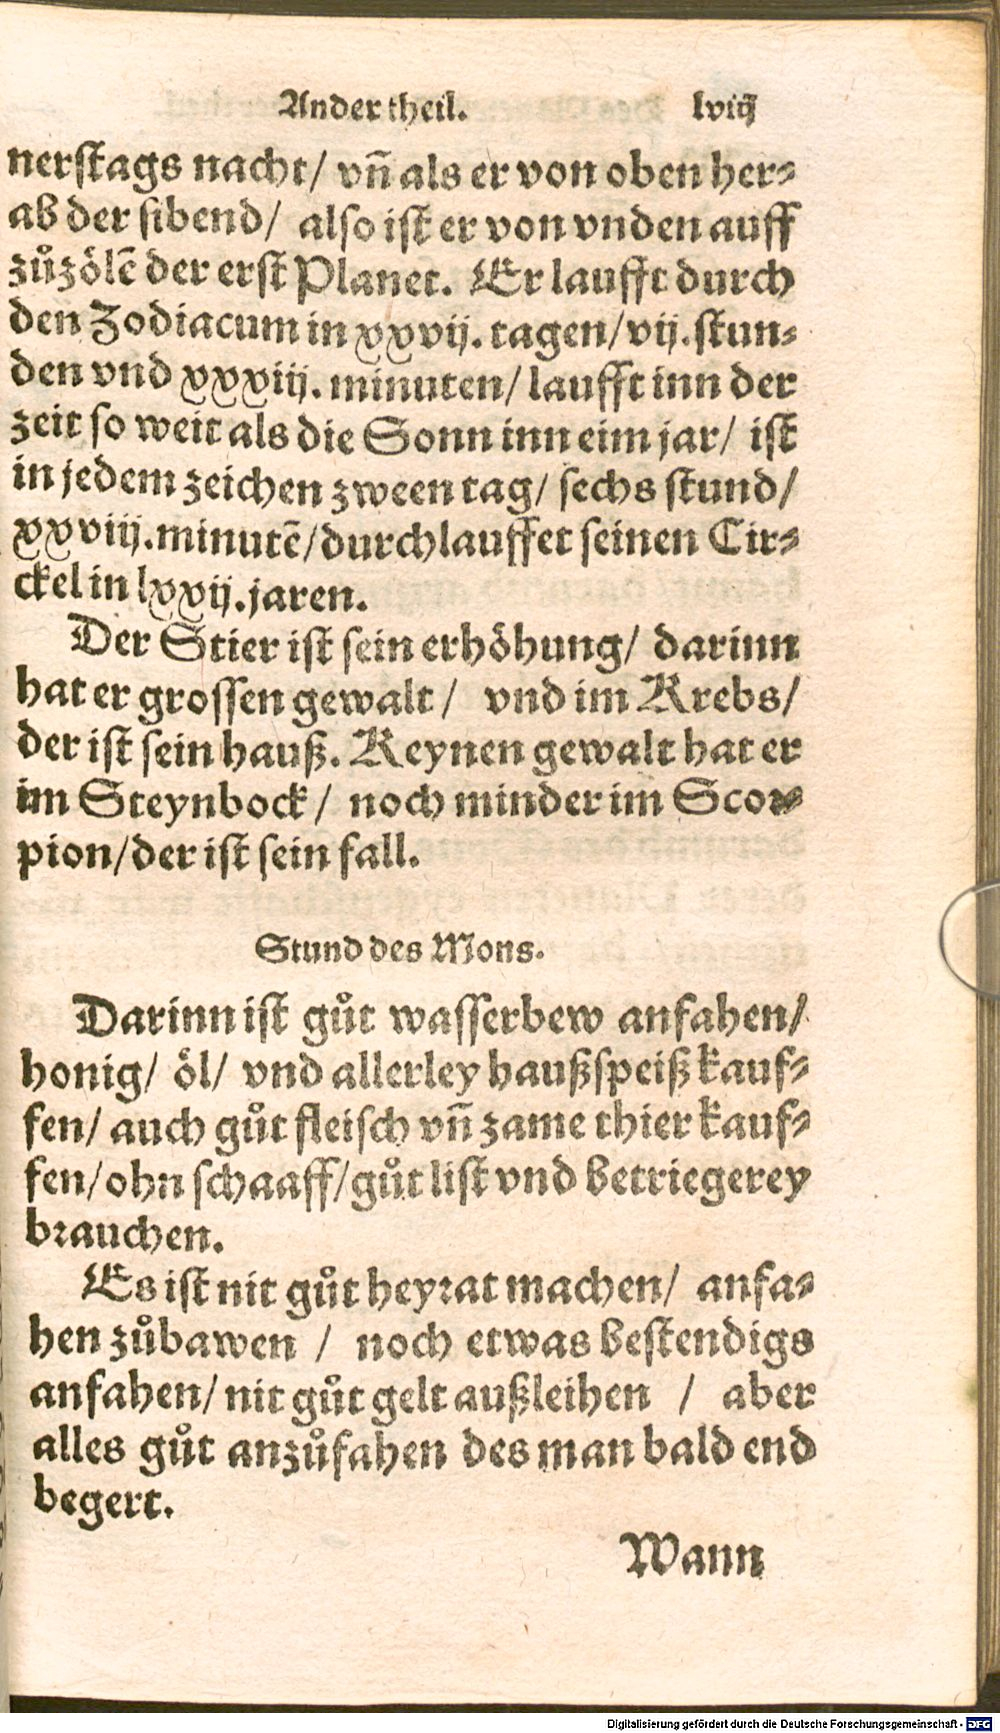 Ander theil. lviij
nerſtags nacht/ vñ als er von oben her⸗
ab der ſibend/ alſo iſt er von vnden auff
zůzölē der erſt Planet. Er laufft durch
den Zodiacum in xxvij. tagen/ vij. ſtun⸗
den vnd xxxiij. minuten/ laufft inn der
zeit ſo weit als die Sonn inn eim jar/ iſt
in jedem zeichen zween tag/ ſechs ſtund/
xxviij. minutē/ durchlauffet ſeinen Cir⸗
ckel in lxxij. jaren.
Der Stier iſt ſein erhöhung/ darinn
hat er groſſen gewalt/ vnd im Krebs/
der iſt ſein hauß. Keynen gewalt hat er
im Steynbock/ noch minder im Scor⸗
pion/ der iſt ſein fall.
Stund des Mons.
Darinn iſt gůt waſſerbew anfahen/
honig/ öl/ vnd allerley haußſpeiß kauf⸗
fen/ auch gůt fleiſch vñ zame thier kauf⸗
fen/ ohn ſchaaff/ gůt liſt vnd betriegerey
brauchen.
Es iſt nit gůt heyrat machen/ anfa⸗
hen zůbawen / noch etwas beſtendigs
anfahen/ nit gůt gelt außleihen / aber
alles gůt anzůfahen des man bald end
begert.
Wann
Digitalisierung gefördert durch die Deutsche Forschungsgemeinschaft - DFG